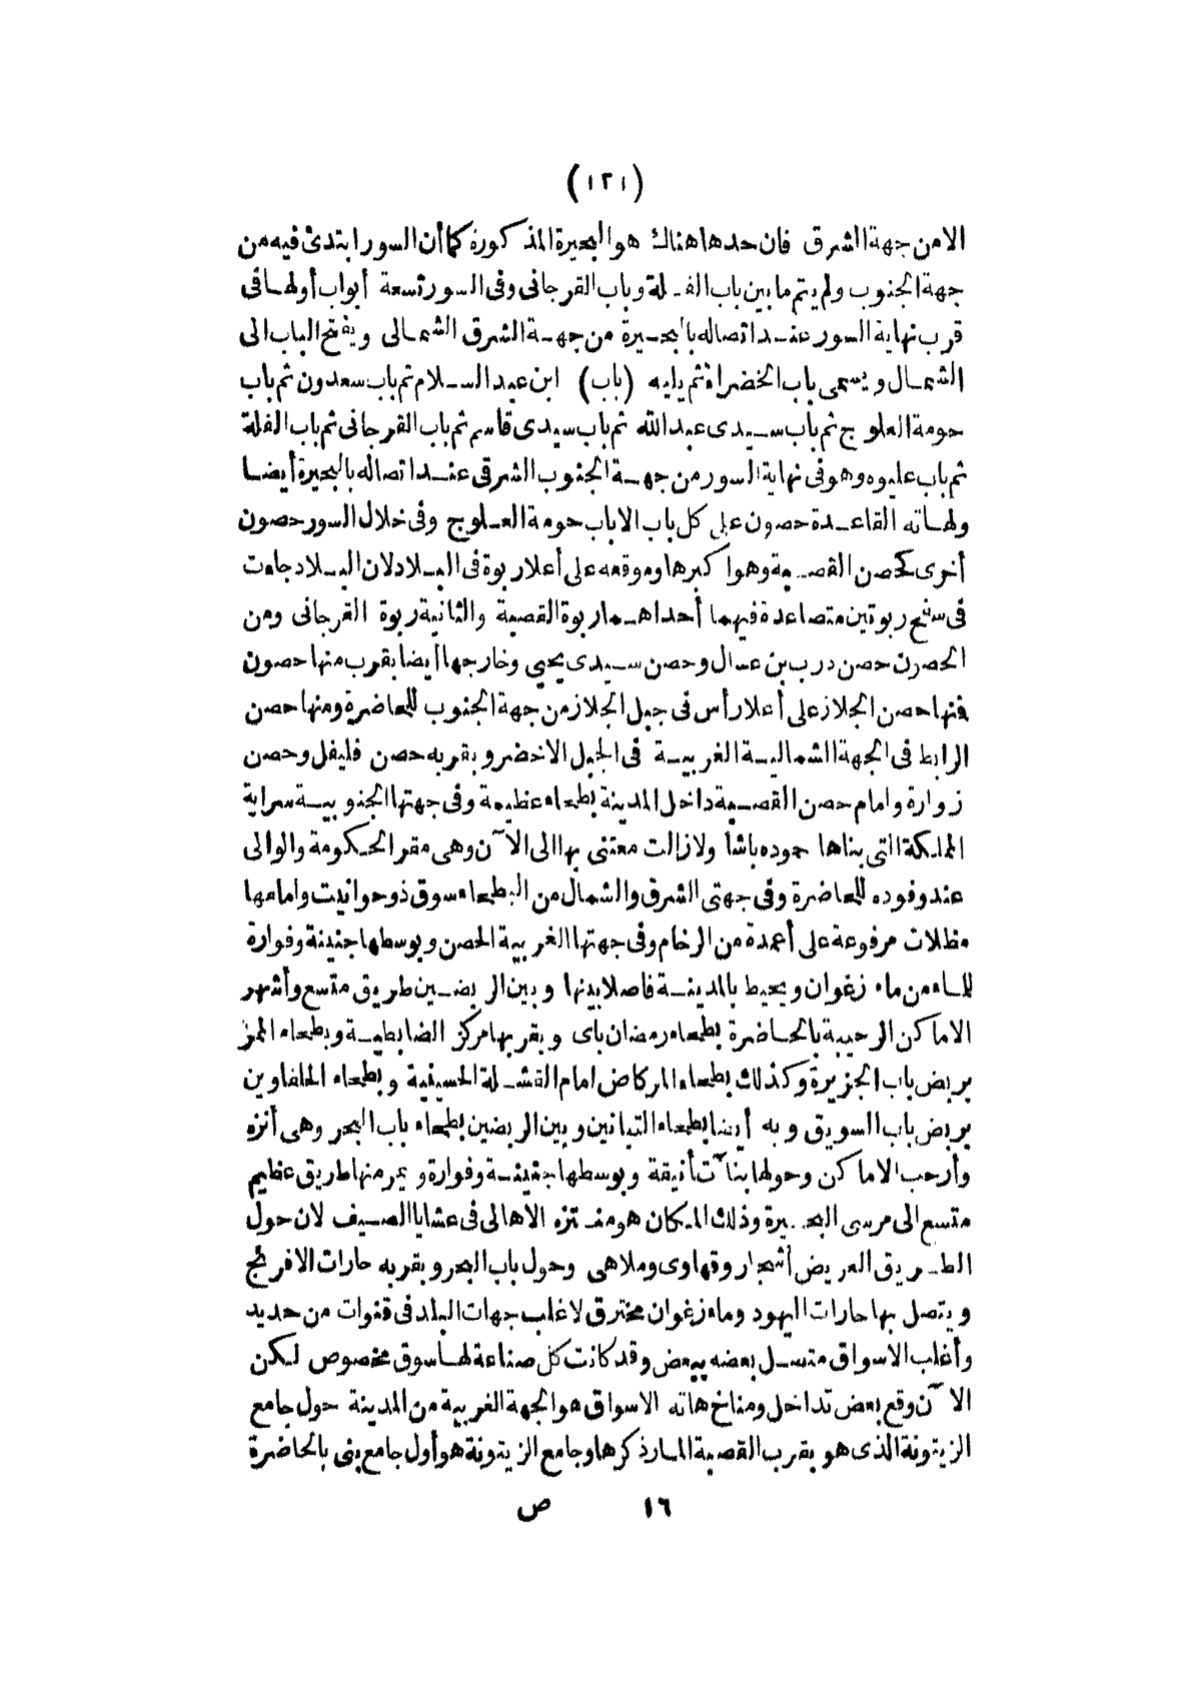 (١٢١)
الا من جهة الشرق فان حدها هناك هو البحيرة المذكورة كما أن السور ابتدئ فيه من
جهة الجنوب ولم يتم ما بين باب الفلة وباب القرجانى وفى السور تسعة أبواب أولها فى
قرب نهاية السور عند اتصاله بالبحيرة من جهة الشرق الشمالى ويفتح الباب الى
الشمال ويسمى باب الخضراء ثم يليه (باب) ابن عبد السلام ثم باب سعدون ثم باب
حومة العلوج ثم باب سيدى عبد الله ثم باب سيدى قاسم ثم باب القرجانى ثم باب الفلة
ثم باب عليوه وهو فى نهاية السور من جهة الجنوب الشرقى عند اتصاله بالبحيرة أيضا
ولهاته القاعدة حصون على كل باب الا باب حومة العلوج وفى خلال السور حصون
أخرى كحصن القصبة وهو اكبرها وموقعه على أعلا ربوة فى البلاد لان البلاد جاءت
فى سفح ربوتين متصاعدة فيهما أحداهما ربوة القصبة والثانية ربوة القرجانى ومن
الحصون حصن درب بن عسال وحصن سيدى يحيى وخارجها أيضا بقرب منها حصون
فنها حصن الجلاز على أعلا رأس فى جبل الجلاز من جهة الجنوب للحاضرة ومنها حصن
الرابط فى الجهة الشمالية الغربية فى الجبل الاخضر وبقربه حصن فليفل وحصن
زوارة وامام حصن القصبة داخل المدينة بطحاء عظيمة وفى جهتها الجنوبية سراية
المملكة التى بناها حموده باشا ولازالت معتنى بها الى الآن وهى مقر الحكومة والوالى
عند وفوده للحاضرة وفى جهتى الشرق والشمال من البطحاء سوق ذو حوانيت وامامها
مظلات مرفوعة على أعمدة من الرخام وفى جهتها الغربية الحصن وبوسطها جنينة وفوارة
للماء من ماء زغوان ويحيط بالمدينة فاصلا بينها وبين الربضين طريق متسع وأشهر
الاماكن الرحيبة بالحاضرة بطحاء رمضان باى وبقربها مركز الضابطية وبطحاء المز
بربض باب الجزيرة وكذلك بطحاء المركاض امام القشلة الحسينية وبطحاء الحلفاوين
بربض باب السويق وبه أيضا بطحاء التبانين وبين الربضين بطحاء باب البحر وهى أنزه
وأرحب الاماكن وحولها بنا آت أنيقة وبوسطها جنينة وفوارة ويمر منها طريق عظيم
متسع الى مرسى البحيرة وذلك المكان هو منتزه الاهالى فى عشايا الصيف لان حول
الطريق العريض أشجار وقهاوى وملاهى وحول باب البحر وبقربه حارات الافرنج
ويتصل بها حارات اليهود وماء زغوان مخترق لاغلب جهات البلد فى قنوات من حديد
وأغلب الاسواق متصل بعضه ببعض وقد كانت كل صناعة لها سوق مخصوص لكن
الآن وقع بعض تداخل ومناخ هاته الاسواق هو الجهة الغربية من المدينة حول جامع
الزيتونة الذى هو بقرب القصبة المار ذكرها وجامع الزيتونة هو أول جامع بنى بالحاضرة
١٦ ص